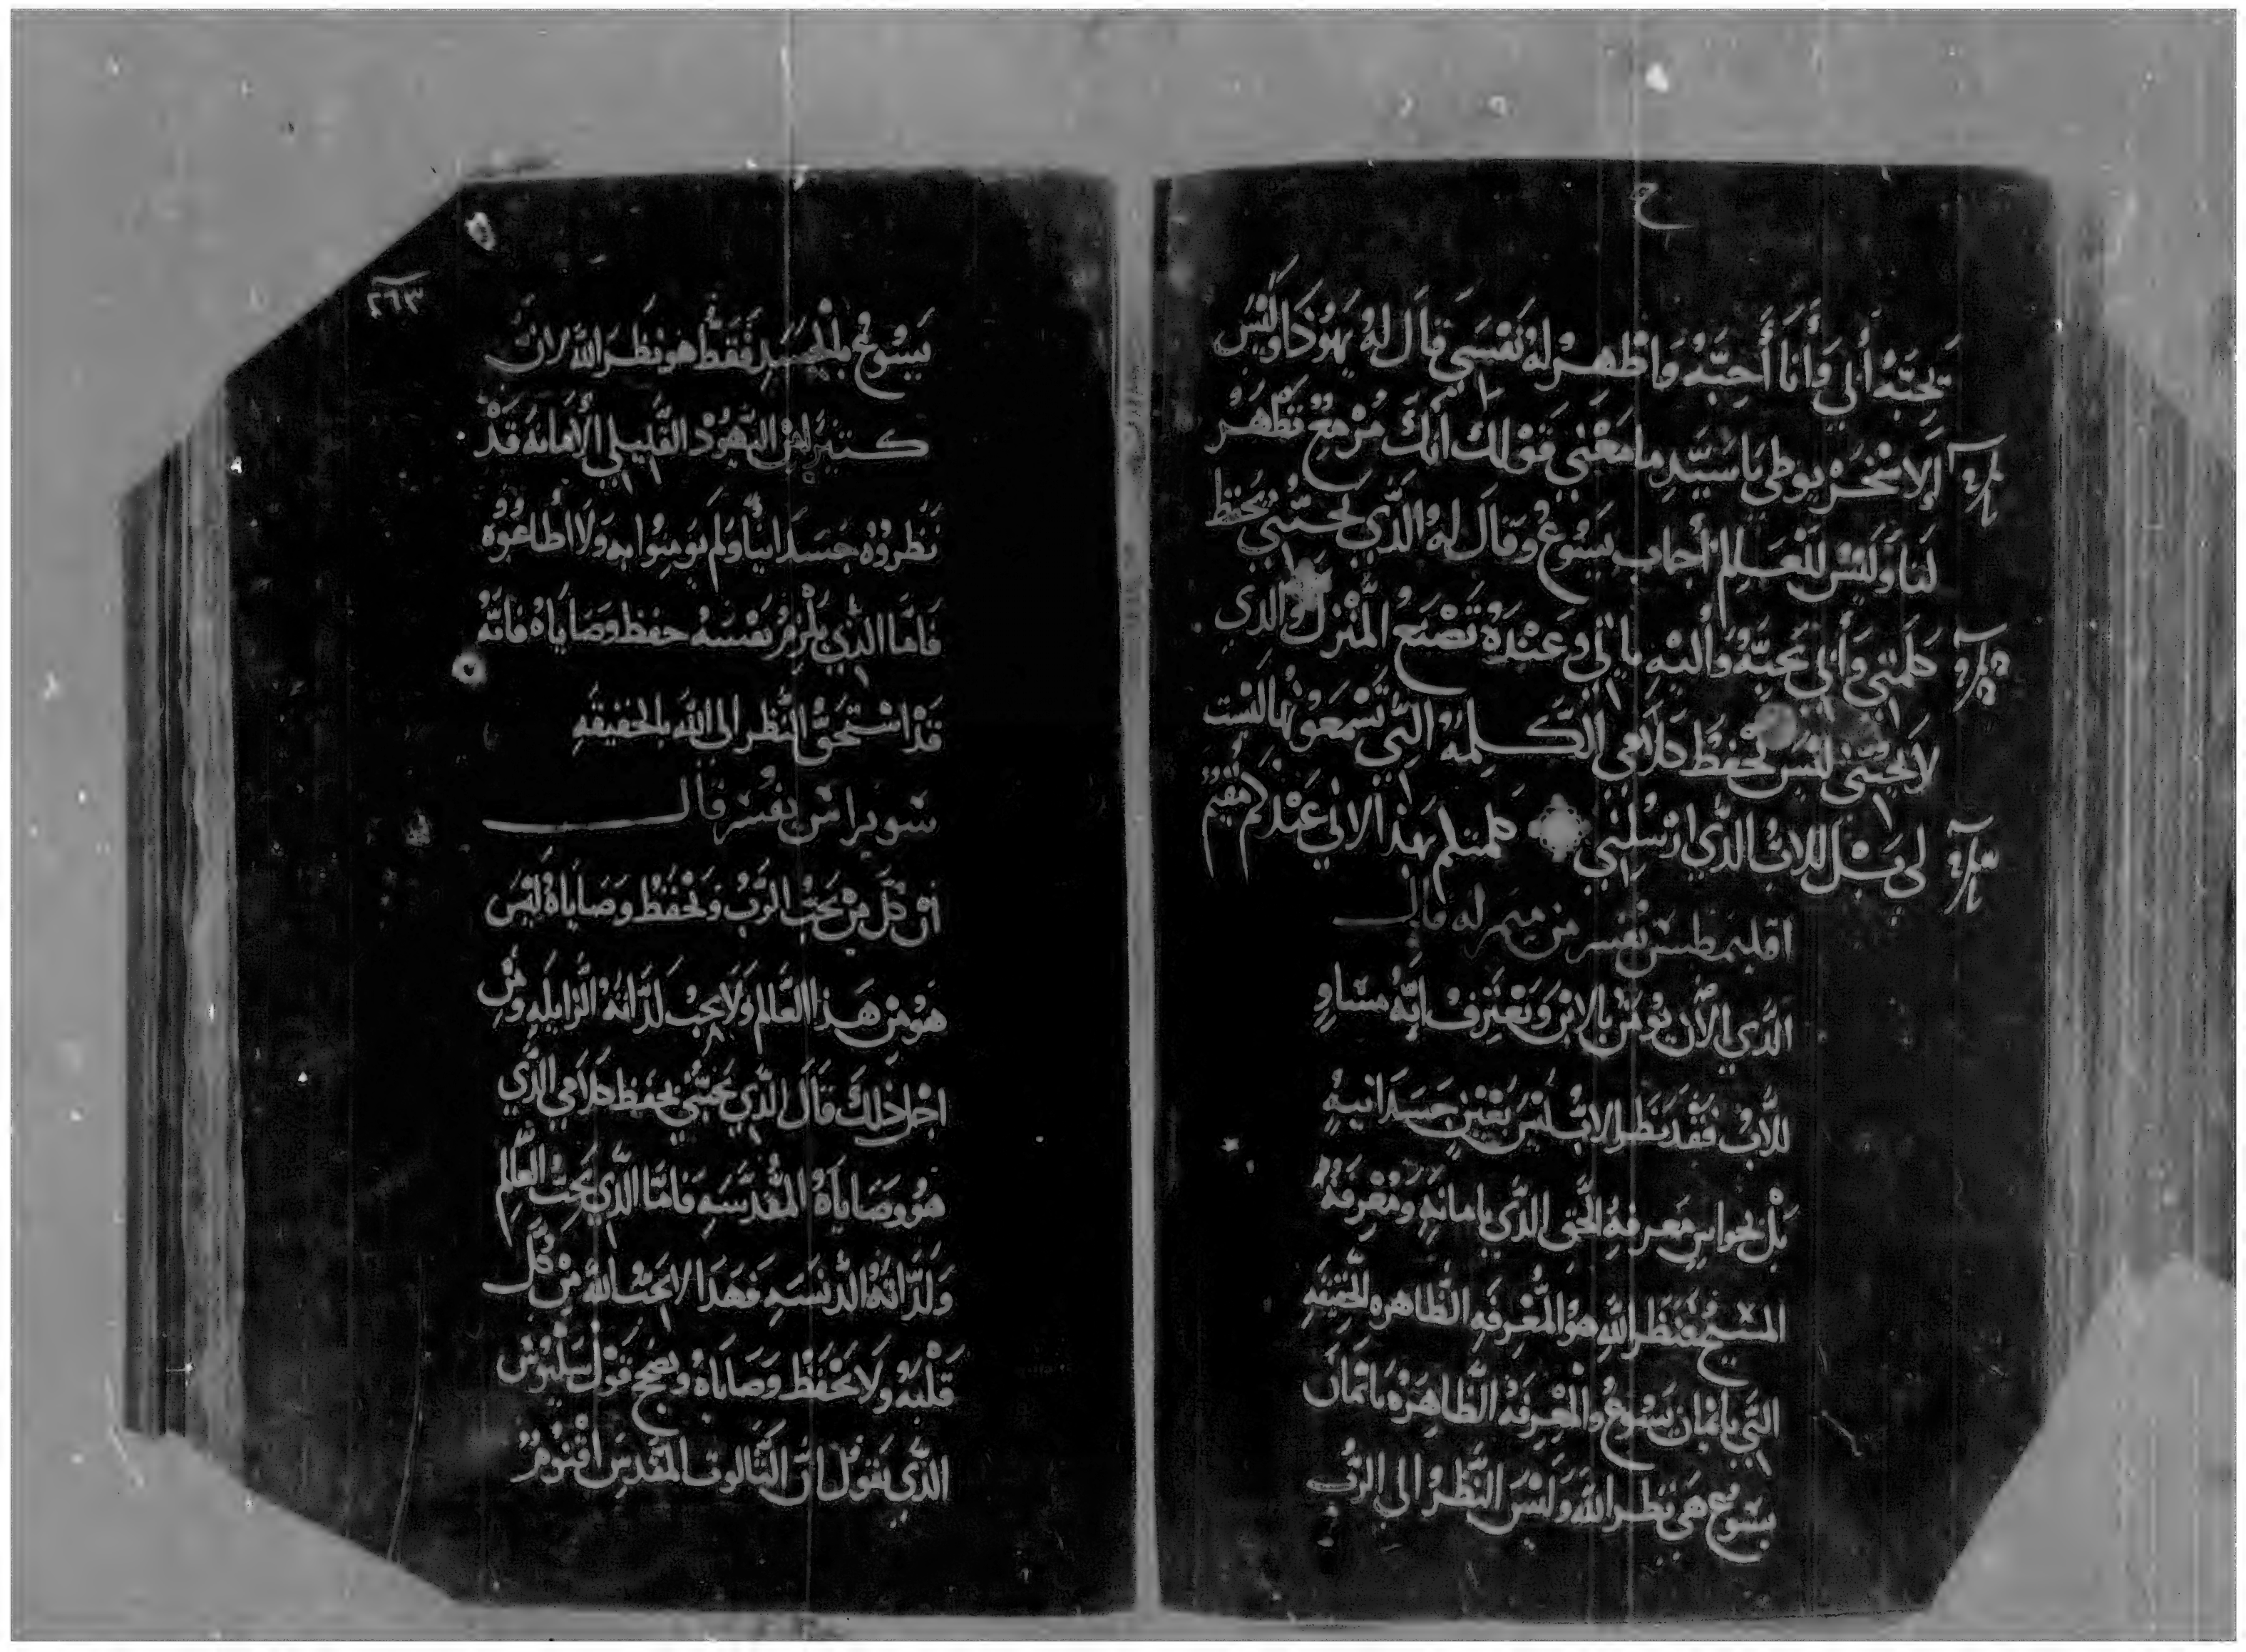 ح
يحبّه أبي وَأَنا أُحِبَّهُ وَاظهِر لهُ نَفْسَي قاَل لهُ يَهُوْذا وَلَيْسَ
اَلاسْخَرْيوطي يَا سَيّدِ ما مَعْني قَوْلك انكَ مُزمِعْ تَظْهَر
لنا وَلَيْسَ للعَالم أجاب يَسُوعْ وَقاَل لهُ الذَّي يُحبّني يحفظ
كلمتي وَأبي يَحبّهُ وَأليْهِ يَأتي وَعنْدَهُ نَصْنَع المَنْزل والذي
لا يُحبّني ليْسَ يحْفظ كلامي الكلِمهْ التِّي تَسْمَعونهَا ليْست
لي بَلْ للاب الذَّي ارْسلني كلمتكم بهذا لاني عنْدكم مُقيْم
اقليمطس يفسر من ميمر له قال
الَّذي الاَن يؤمْن بالابْن وَيَعْترَفْ انّهُ مسَاوٍ
للاَبْ فَقَد نَظر الابْ ليْسَ بعَيْنٍ جَسَدَانيهْ
بَلْ بحواس مَعرفهُ الحق الذَّي بامانهِ وَمَعْرفهْ
المسيحْ فنَظَر اللهِ هوَ المَّعْرِفَهِ الظَاهره الحَقيْقهِ
التَّي بايْمان يَسُوعْ وَالمعْرفَهْ الظَّاهِرَهْ بايْمَان
يسَوع هَي نَظر الله وَليْسَ النَّظرْ الي الرَّب
٢٦٣
يَسُوعْ بالجسَدِ فَقَط هو نظَر الله لانَّ
كتيرْ مْن اليَهُوْد القَليلي الأمَانه قَدْ
نَظَروُهْ جَسَدَانيّاً وَلم يَوْمنِوُا بهِ وَلا أطاعُوْهْ
فَامَّا الذّي يَلْزمْ نَفْسَهُ حفظ وَصَايَاهْ فانّهْ
قدْ اسْتحَقْ النَّظر الي الله بالحقيقهِ
سويراس يفسر قال
أن كلَّ مْن يَحبّ الرَّبْ وَيَحْفَظْ وَصَاياهْ ليْسَ
هَوُ مِن هَذا العَالم وَلاَ يحِبْ لذَّاتهُ الزَّايلهِ وَمْن
اجْل ذلكَ قَال الَّذي يَحبّني يحَفظ كلاَمي الذَّي
هوُ وَصَايَاهْ المُقدّسَهِ فَامَّا الَّذي يَحِبّ العَّالم
وَلذَّاتهُ الدَّنسَهِ فَهَذَا لا يَحبّ اللهْ مِنْ كلَّ
قَلْبَهْ وَلا يَحْفَظْ وَصَاياَهْ وَيصَحْ قَوْل سَبليُوْس
الذَّي يَقول انَّ التَالوت المقَدِس اقنوُمْ